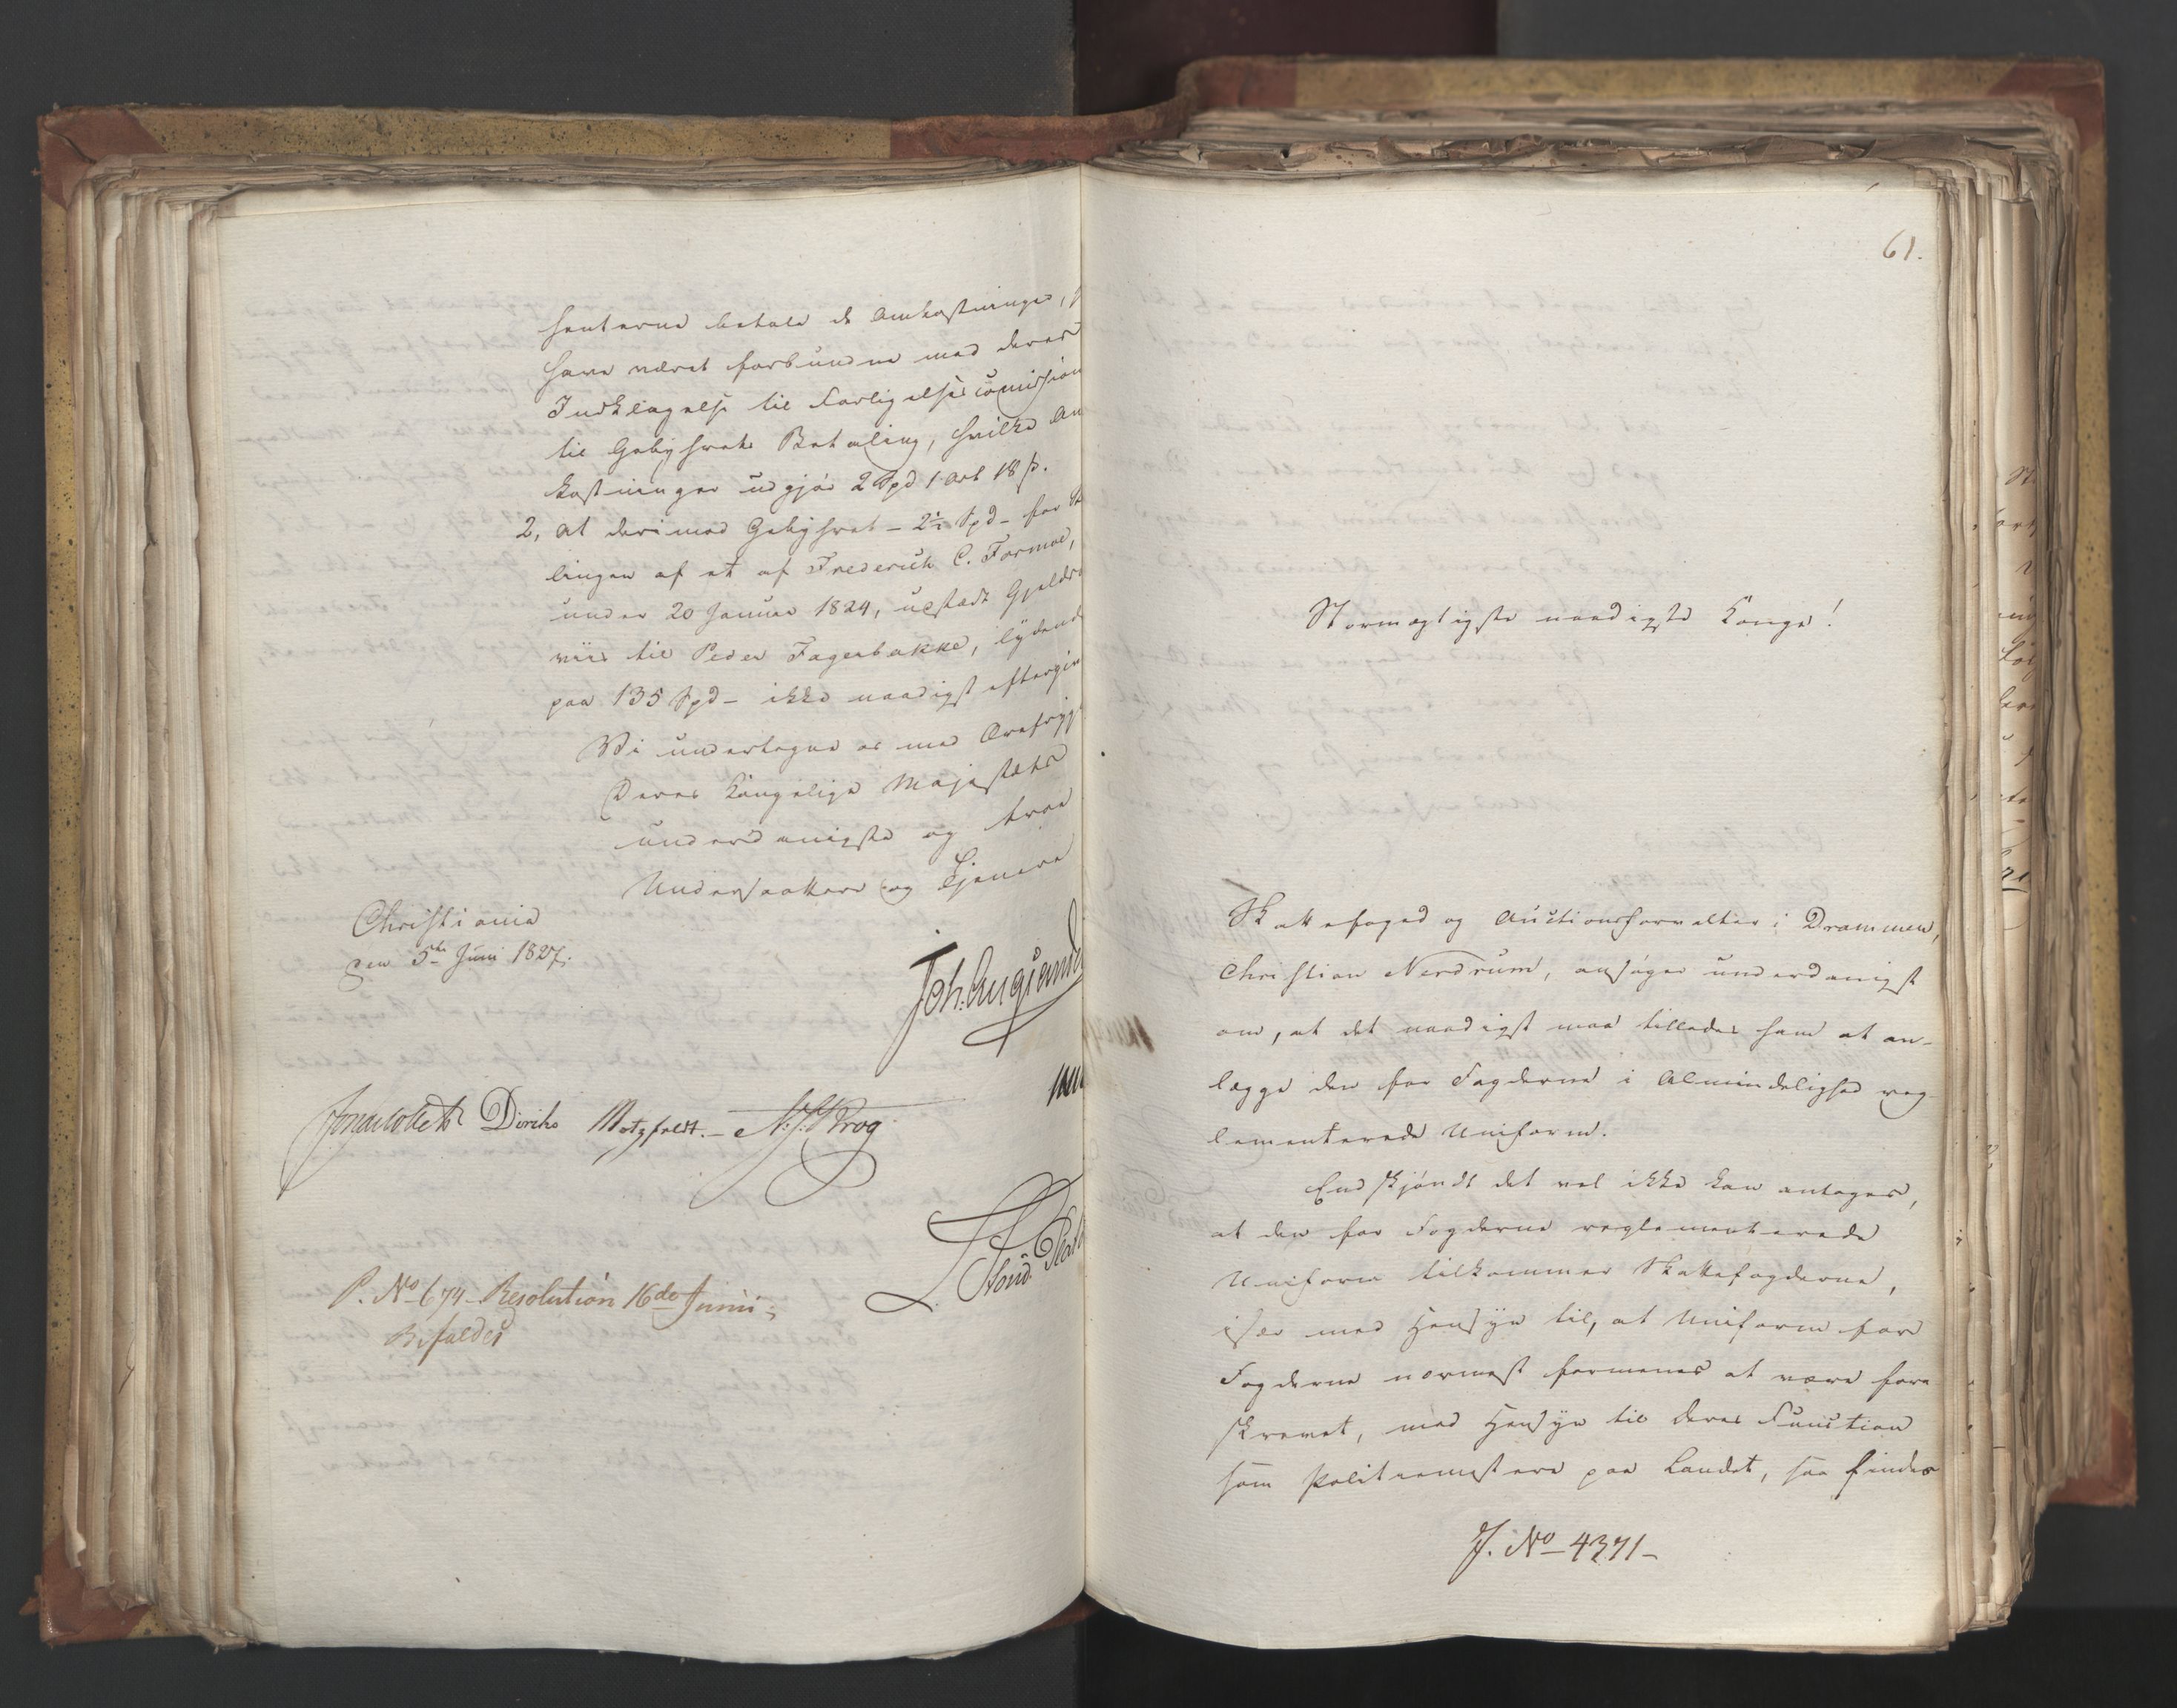 senterne betale de Omkostninger,
have været forbundne med deres
Indklagelse til Forligelsescomission
til Gebyhrets Betaling, hvilke Om
kostninger udgjør 2 Spd 1 Ort 18 s.
2, at derimod Gebyhret - 2½ Spd - for
lingen af et af Frederich C. Formoe,
under 20 Januar 1824, udstædt Gjelds
viis til Peder Fagerbakke, lydend
paa 135 Spd - ikke naadigst eftergiv
Vi undertegne os med Ærefrygt
Deres Kongelige Majestæts
underdanigste og troe
Undersaatter og Tjenere
Christiania
den 5te Juni 1827.
Joh. Aug Sand
Jonas Collett Diriks Motzfeldt. - N. J. Krog
P. No 674 - Resolution 16de Junii -
Bifaldes
61.
Stormægtigste naadigste Konge!
Skattefoged og Auctionsforvalter i Drammen,
Christian Nerdrum, ansøger underdanigst
om, at det naadigst maa tillades ham at an-
lægge den for Fogderne i Almindelighed reg-
lementerede Uniform.
Endskjøndt det vel ikke kan antages,
at den for Fogderne reglementerede
Uniform tilkommer Skattefogderne,
især med Hensyn til, at Uniform for
Fogderne nærmest formenes at være fore
skrevet, med Hensyn til deres Function
som Politiemestere paa Landet, saa findes
J. No 4371 -